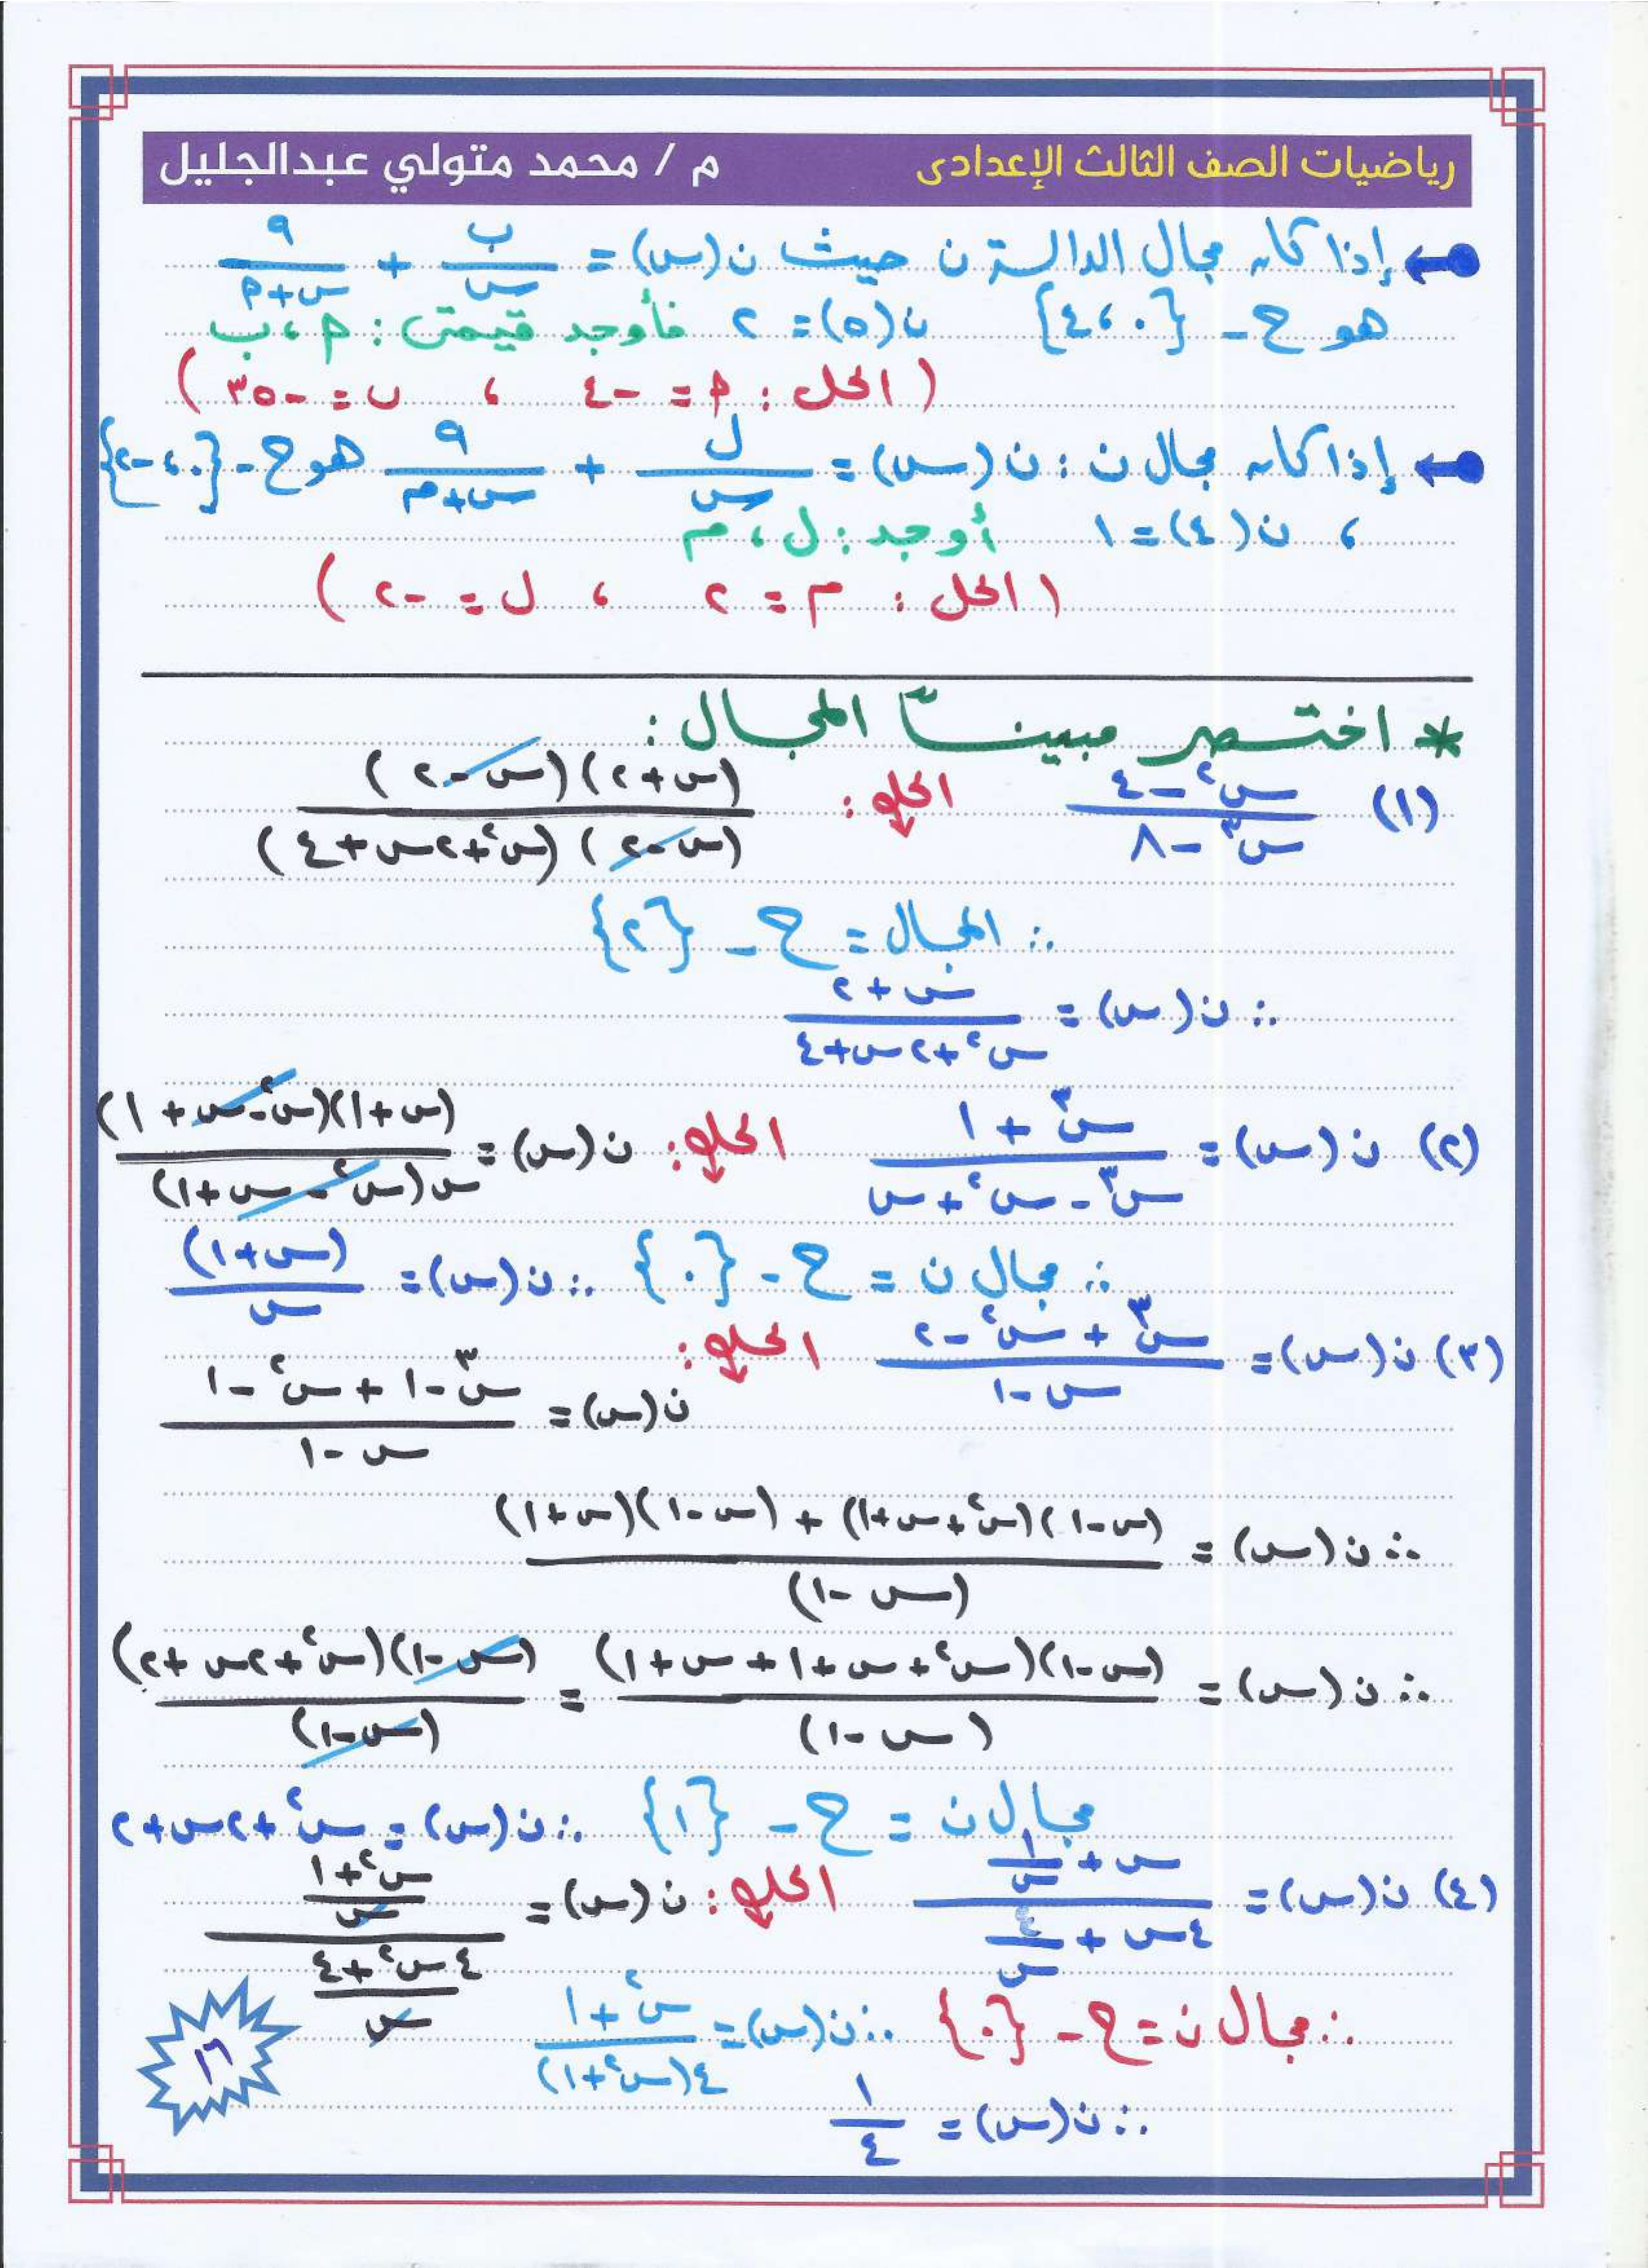 رياضيات الصف الثالث الإعدادى م / محمد متولي عبدالجليل
إذا كان مجال الدالة ن حيث ن(س) = ب/س + ٩/(س+م)
هو ح - {٠، ٤} ن(٥) = ٢ فأوجد قيمتى : م، ب
(الحل : م = -٤ ، ب = -٣٥)
إذا كان مجال ن : ن(س) = ل/س + ٩/(س+م) هو ح - {٠، -٢}
، ن(٤) = ١ أوجد : ل، م
(الحل : م = ٢ ، ل = -٢)
* اختصر مبيناً المجال :
(١) (س٢ - ٤)/(س٣ - ٨) الحل : (س+٢)(س-٢)/(س-٢)(س٢+٢س+٤)
∴ المجال = ح - {٢}
∴ ن(س) = (س+٢)/(س٢+٢س+٤)
(٢) ن(س) = (س٣ + ١)/(س٣ - س٢ + س) الحل : ن(س) = (س+١)(س٢-س+١)/س(س٢-س+١)
∴ مجال ن = ح - {٠} ∴ ن(س) = (س+١)/س
(٣) ن(س) = (س٣ + س٢ - ٢)/(س-١) الحل :
ن(س) = (س٣ - ١ + س٢ - ١)/(س-١)
∴ ن(س) = ((س-١)(س٢+س+١) + (س-١)(س+١))/(س-١)
∴ ن(س) = (س-١)(س٢+س+١+س+١)/(س-١) = (س-١)(س٢+٢س+٢)/(س-١)
مجال ن = ح - {١} ∴ ن(س) = س٢+٢س+٢
(٤) ن(س) = (س + ١/س)/(٤س + ٤/س) الحل : ن(س) = ((س٢+١)/س)/((٤س٢+٤)/س)
∴ مجال ن = ح - {٠} ∴ ن(س) = (س٢+١)/٤(س٢+١)
∴ ن(س) = ١/٤